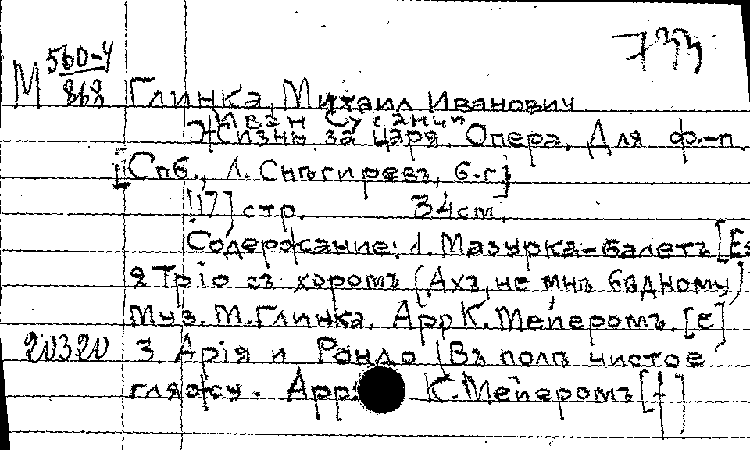 733
М 560-4
868
Глинка, Михаил Иванович
Иван Сусанин
Жизнь за царя. Опера. Для ф.-п.
[Спб., Л. Снъгиревъ, б.г.]
[17] стр. 34 см.
Содержание: 1. Мазурка-балетъ [Es
2 Трiо съ хоромъ (Ахъ, не мнъ бъдному)
Муз. М. Глинка. Арр К. Мейеромъ. [c]
20320 3 Арiя и Рондо (Въ поле чистое
гляжу. Арр. К. Мейеромъ [f]